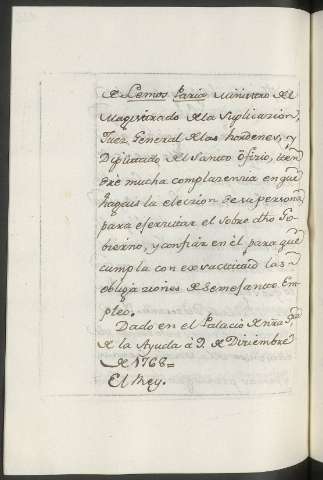 de Lemos Faria Ministro del
Magistrado de la Suplicazion,
Juez General de las hordenes, y
Diputado del Santo Ofizio, ten
dré mucha complazenzia en que
hagais la elezion de su persona
para exerzitar el sobre dho Go-
bierno, y confiar en él para que
cumpla con exsactitud las
obligaziones de semejante Em
pleo.
Dado en el Palacio de nra Sra
de la Ayuda à 9. de Diziembre
de 1768=
El Rey.